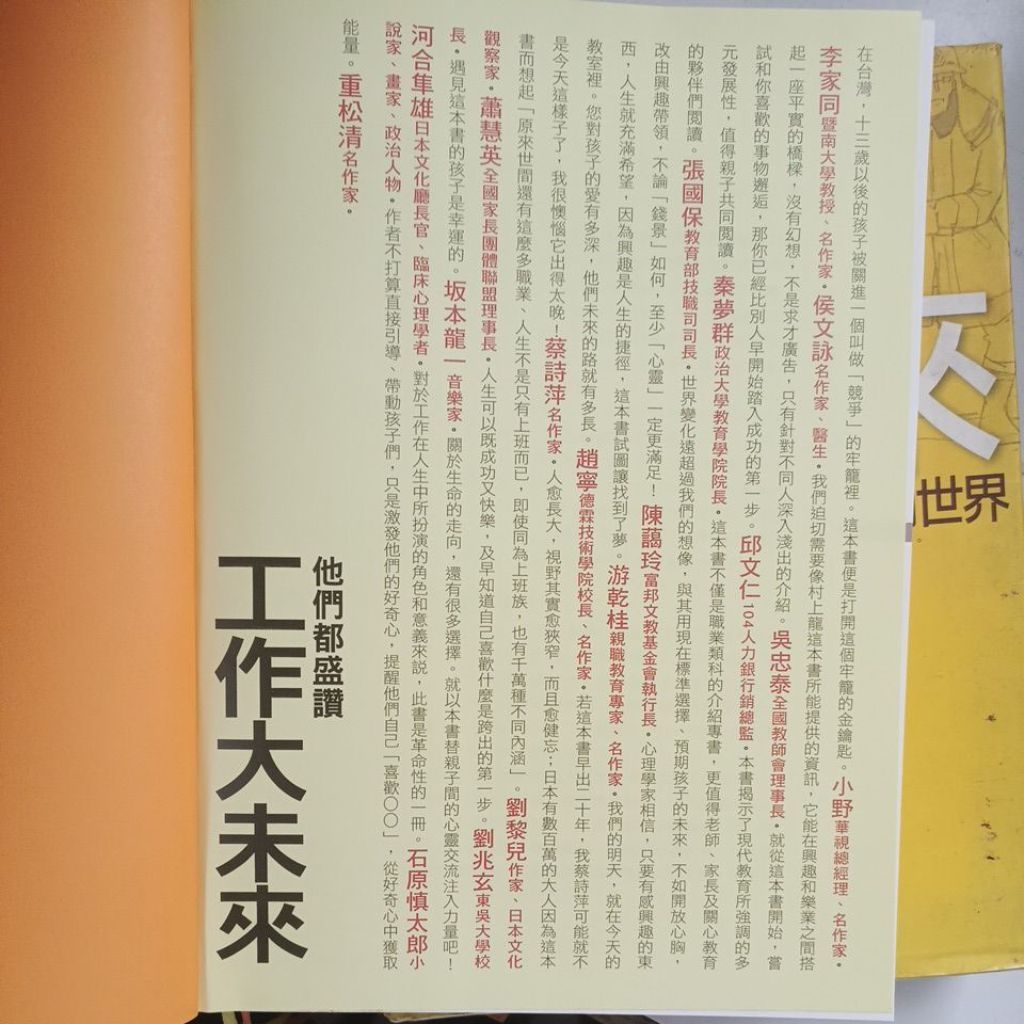 在台灣，十三歲以後的孩子被關進一個叫做「競爭」的牢籠裡。這本書便是打開這個牢籠的金鑰匙。小野華視總經理、名作家•
李家同暨南大學教授、名作家•侯文詠名作家、醫生•我們迫切需要像村上龍這本書所能提供的資訊，它能在興趣和樂業之間搭
起一座平實的橋樑，沒有幻想，不是求才廣告，只有針對不同人深入淺出的介紹。吳忠泰全國教師會理事長•就從這本書開始，嘗
試和你喜歡的事物邂逅，那你已經比別人早開始踏入成功的第一步。邱文仁104人力銀行銷總監•本書揭示了現代教育所強調的多
元發展性，值得親子共同閱讀。秦夢群政治大學教育學院院長•這本書不僅是職業類科的介紹專書，更值得老師、家長及關心教育
的夥伴們閱讀。張國保教育部技職司司長•世界變化遠超過我們的想像，與其用現在標準選擇、預期孩子的未來，不如開放心胸，
改由興趣帶領，不論「錢景」如何，至少「心靈」一定更滿足！陳藹玲富邦文教基金會執行長•心理學家相信，只要有感興趣的東
西，人生就充滿希望，因為興趣是人生的捷徑，這本書試圖讓找到了夢。游乾桂親職教育專家、名作家•我們的明天，就在今天的
教室裡。您對孩子的愛有多深，他們未來的路就有多長。趙寧德霖技術學院校長、名作家•若這本書早出二十年，我蔡詩萍可能就不
是今天這樣子了，我很懊惱它出得太晚！蔡詩萍名作家•人愈長大，視野其實愈狹窄，而且愈健忘；日本有數百萬的大人因為這本
書而想起「原來世間還有這麼多職業、人生不是只有上班而已，即使同為上班族，也有千萬種不同內涵」。劉黎兒作家、日本文化
觀察家•蕭慧英全國家長團體聯盟理事長•人生可以既成功又快樂，及早知道自己喜歡什麼是跨出的第一步。劉兆玄東吳大學校
長•遇見這本書的孩子是幸運的。坂本龍一音樂家•關於生命的走向，還有很多選擇。就以本書替親子間的心靈交流注入力量吧！
河合隼雄日本文化廳長官、臨床心理學者•對於工作在人生中所扮演的角色和意義來說，此書是革命性的一冊。石原慎太郎小
說家、畫家、政治人物•作者不打算直接引導、帶動孩子們，只是激發他們的好奇心，提醒他們自己「喜歡〇〇」，從好奇心中獲取
能量。重松清名作家•
他們都盛讚
工作大未來
世界